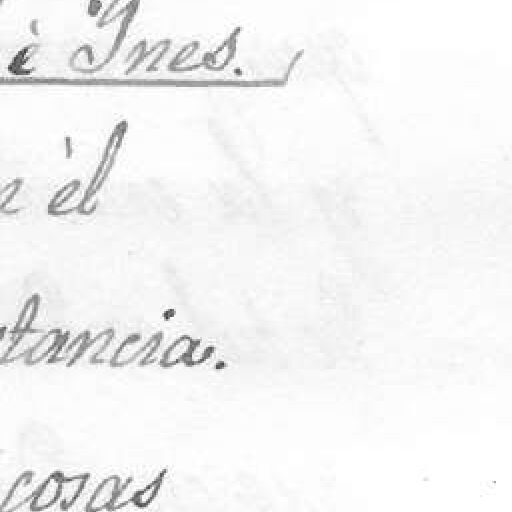 è Ynes.
èl
tancia.
cosas